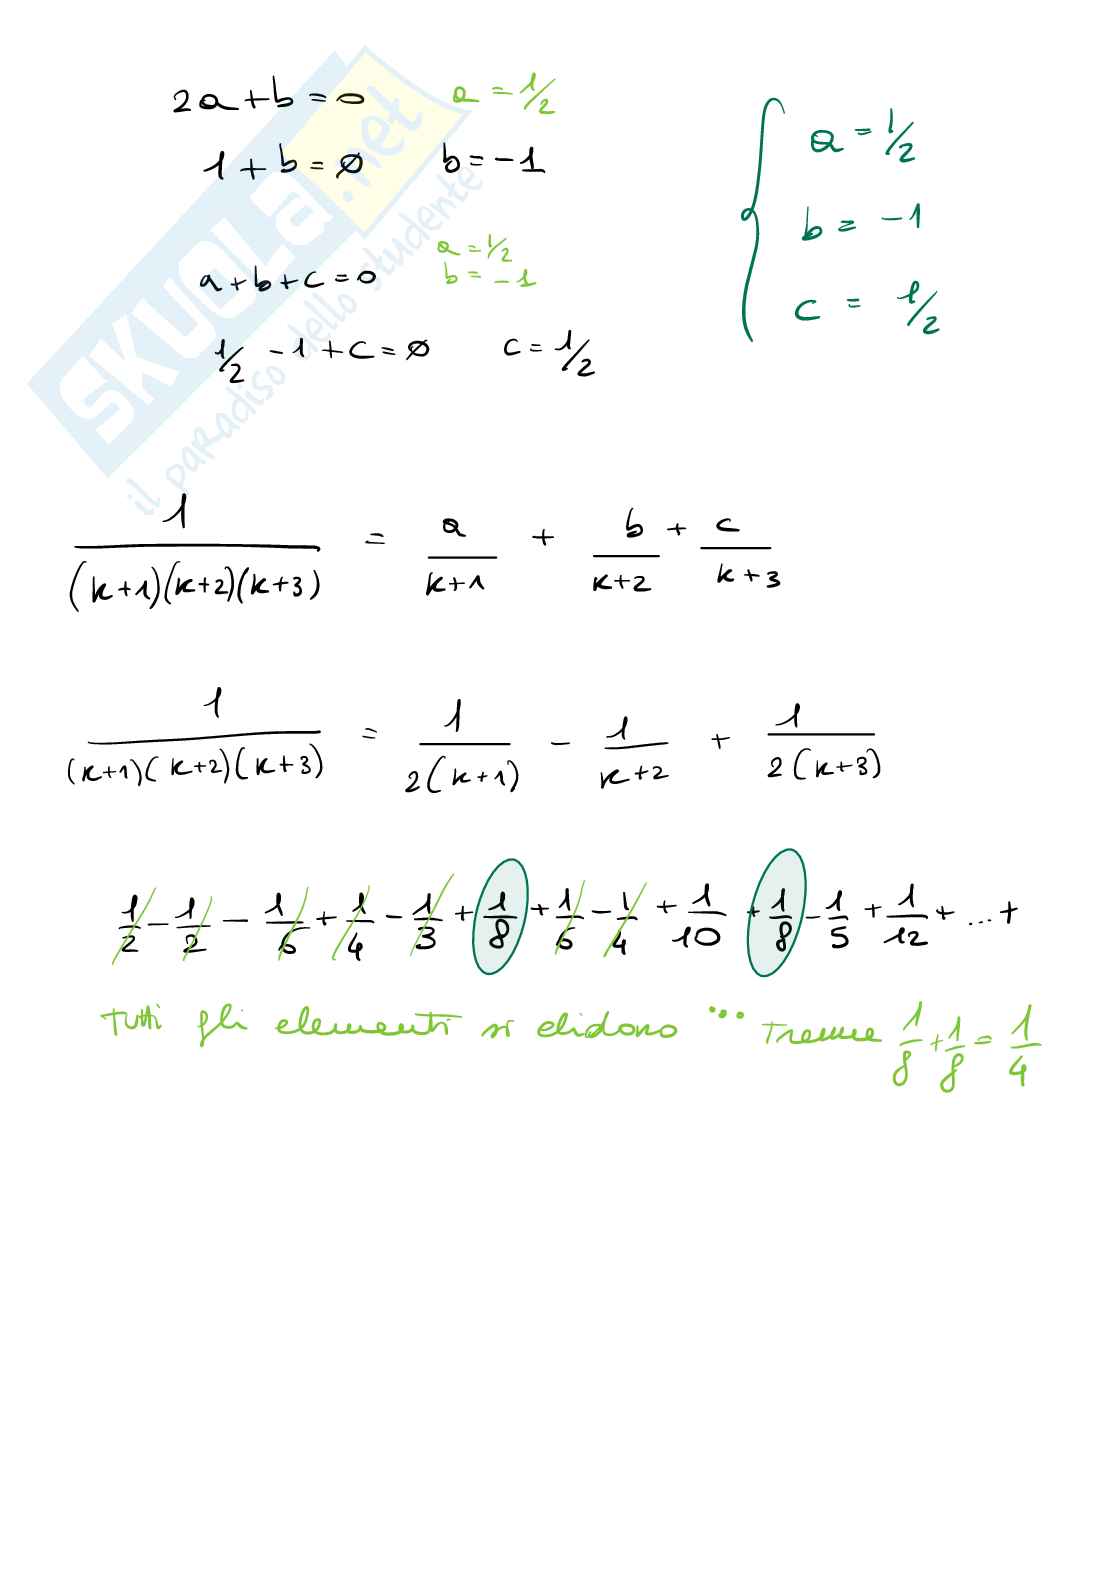 2a+b=0 a=1/2
1+b=∅ b=-1
a+b+c=0 a=1/2
b=-1
1/2 -1+c=∅ c=1/2
{ a=1/2
b=-1
c=1/2
SKUOLA.net
il paradiso dello studente
1/((k+1)(k+2)(k+3)) = a/(k+1) + b/(k+2) + c/(k+3)
1/((k+1)(k+2)(k+3)) = 1/(2(k+1)) - 1/(k+2) + 1/(2(k+3))
1/2 - 1/2 - 1/6 + 1/4 - 1/3 + 1/8 + 1/6 - 1/4 + 1/10 + 1/8 - 1/5 + 1/12 + ...+
Tutti gli elementi si elidono ... Tranne 1/8 + 1/8 = 1/4